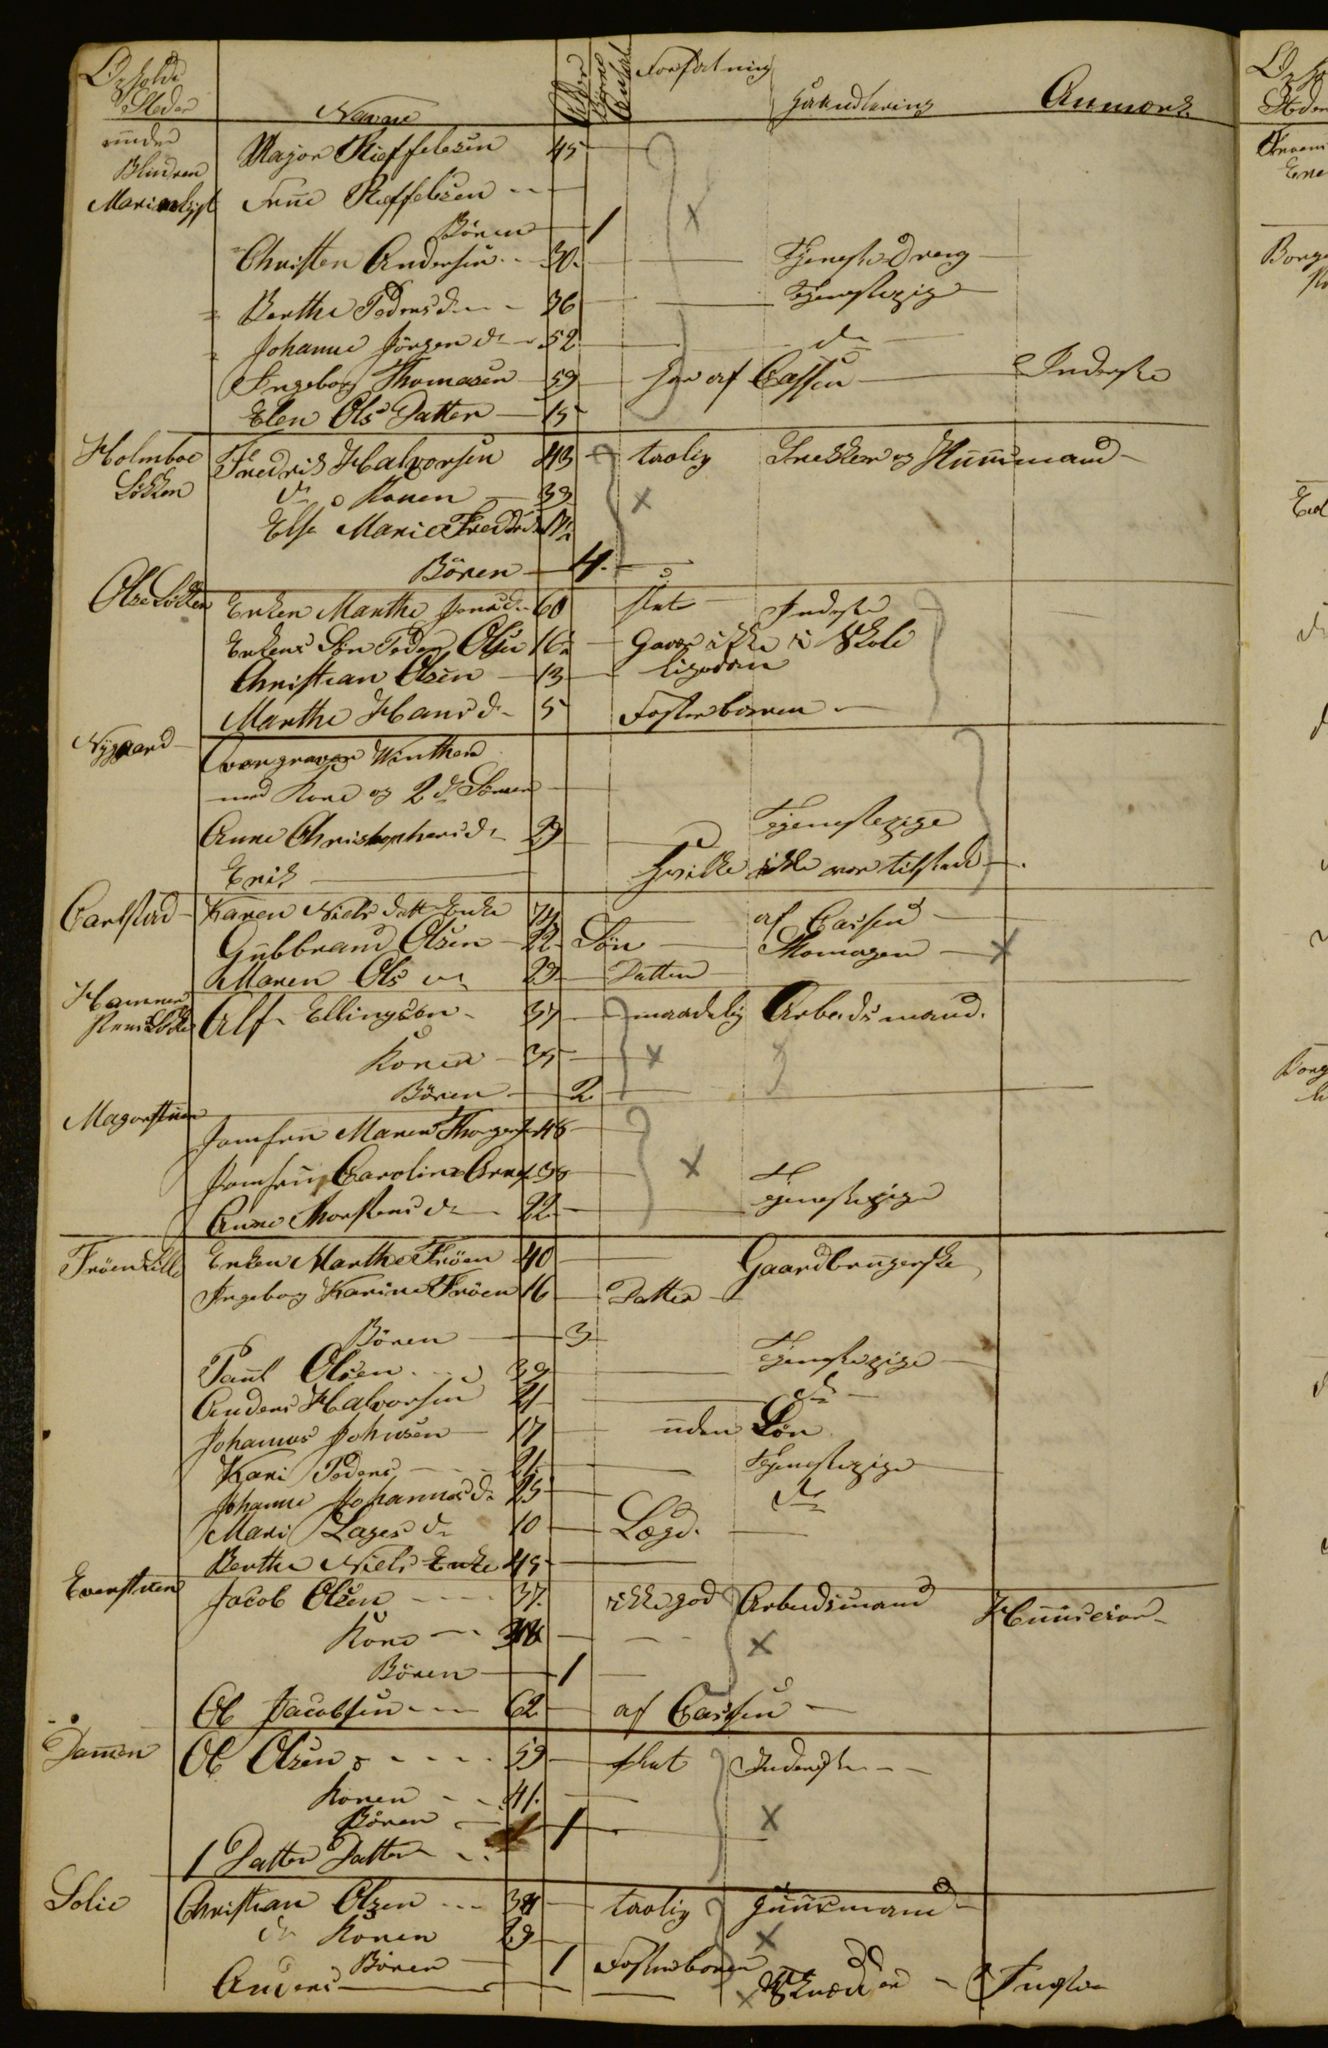 Opholds Steder Navne Alder Børns Antal Forfatning Haandtering Anmærk.
under Major Rieffelsen 45
Blindren
Marienlyst Frue Rieffelsen
Bören 1
Christen Andersen 30. Tjeneste Dreng
Berthe Peders d. 36 Tjenestepige
Johanne Jörgen d. 52 do
Ingeborg Thomasen 59 har af Cassen Inderste
Elen Ols Datter 15
Holmboe Fredrik Halvorsen 43 taalig Snekker og Huusmand
Lökken do Konen 33
Else Marie Fredriks
Bören 4.
Olse Lökken Enken Marthe Jens d. 60 slet Inderste
Enkens Sön Peder Olsen 16 Gaaer ikke i Skole
Christian Olsen 13 ligedan
Marthe Hans d. 5 Fosterbarn
Nygaard Oversgraver Winther
med Kone og 2de Sönner
Anne Christophers d. 29 Tjenestepige
Erik hvilke ikke var tilstede
Carlstad Karen Niels datt Enke 74 af Cassen
Gulbrand Olsen 22 Sön Skomager
Maren Ols 29 Datter
Hammer Alf Ellingsen 37 maadelig Arbeidsmand.
Konen 35
Bören 2
Magorstuen Jomfru Maren Thorgers 48
Jomfru Caroline 38
Anne Thorstens d. 22 Tjenestepige
Fröen Lille Enken Marthe Fröen 40 Gaardbrugerske
Ingeborg Karine Fröen 16 Datter
Bören 3
Paul Olsen 39 Tjenestepige
Anders Halvorsen 21 do
Johannes Johnsen 17 uden Lön
Kari Peders 21 Tjenestepige
Johanne Johannes d. 25 do
Mari Lages d. 10 Lægd.
Berthe Niels Enke 45
Evenstuen Jacob Olsen 37. ikke god Arbeidsmand Huuseier
Kone 38
Bören 1
Ole Jacobsen 62 af Cassen
Dammen Ole Olsen 59 slet Inderste
Konen 41.
Bören 1
1 Datter Datter
Solie Christian Olsen 38 taalig Huusmand
do Konen 29
Bören 1 Fosterbarn
Anders Skræder Inderste